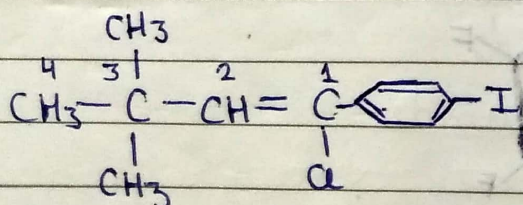 CH3
4 3 2 1
CH3 — C — CH = C — I
CH3 Cl